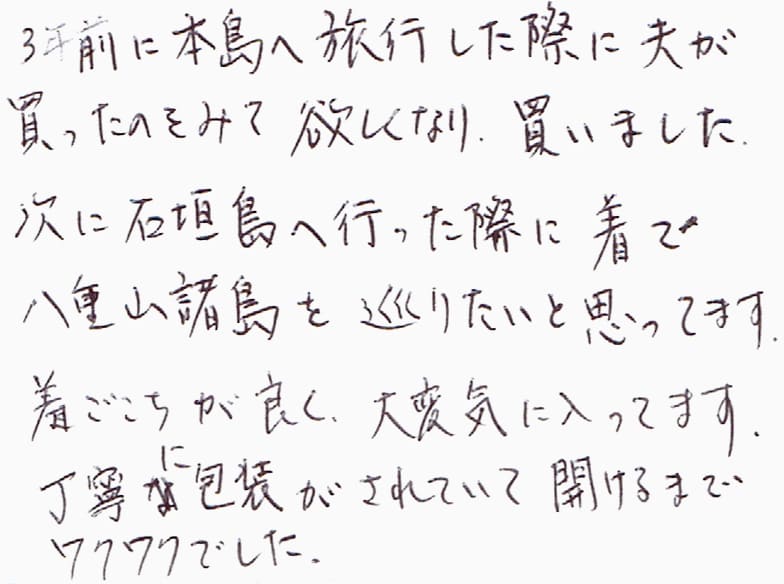 3年前に本島へ旅行した際に夫が
買ったのをみて欲しくなり、買いました。
次に石垣島へ行った際に着て
八重山諸島を巡りたいと思ってます。
着ごこちが良く、大変気に入ってます。
丁寧に包装がされていて開けるまで
ワクワクでした。